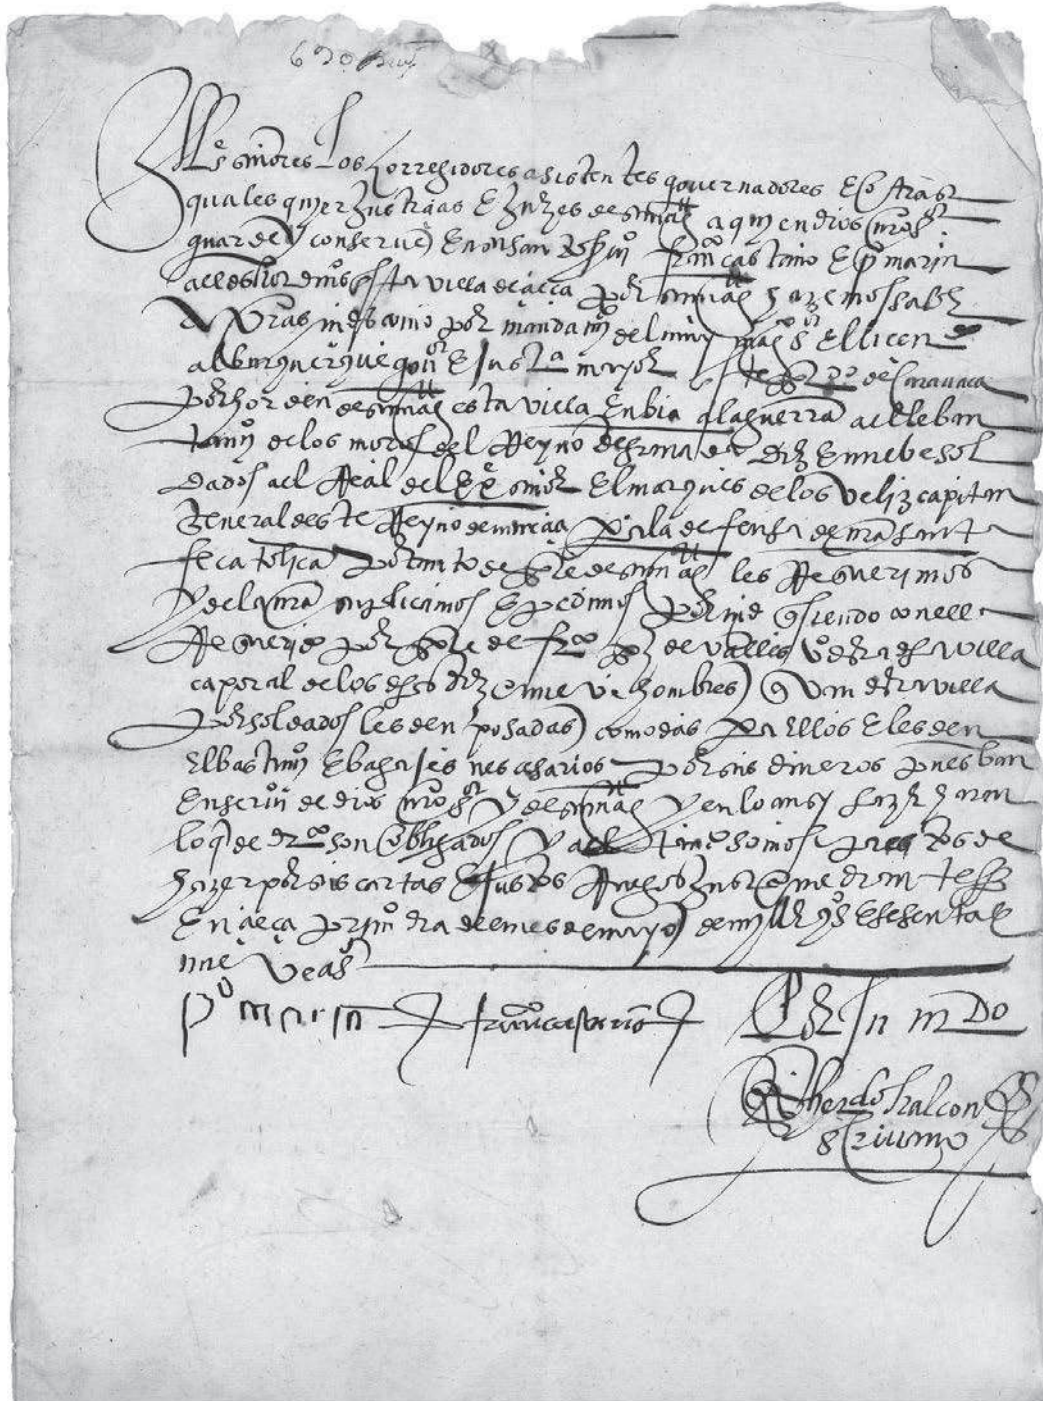 señores los corregidores asistentes governadores E otras
quales quier Justiçias E Juezes de su mag a quien dios nro sr
guarde y conserve En on san Joan castaño E po marin
alcaldes hordinos desta villa de çieça por su mag hazemos saber
a vras mds como por mandamyo del muy mag sr El licendo
alburquerque gouor E Justa mayor de carauaca
por horden de su mag esta villa Enbia a la guerra del leban
tamyo de los moros del Reyno de granada diez E nuebe sol
dados al Real del Exe señor El marques de los veliz capitan
General deste Reyno de murçia pa la defensa de nra santa
fe catolica por tanto de parte de su mag les Requerimos
y de la nra suplicamos E pedimos por md q siendo con ella
Requerido por parte de franco de valles vo desta villa
caporal de los dhos diez E nueve hombres q van desta villa
por soldados les den posadas comodas pa Ellos E les den
El bastimyo E bagajes nesçesarios por sus dineros pues ban
En serui de dios nro sr y de su mag y en lo ansy hazer haran
lo q de dro son obligados y al tanto somos prestos de
hazer por sus cartas E justos Ruegos Justa mediante fha
En çieça primo dia del mes de mayo de myll E qos E sesenta E
nueve as
po marin franco castaño Por su mdo
halcon
escriuano